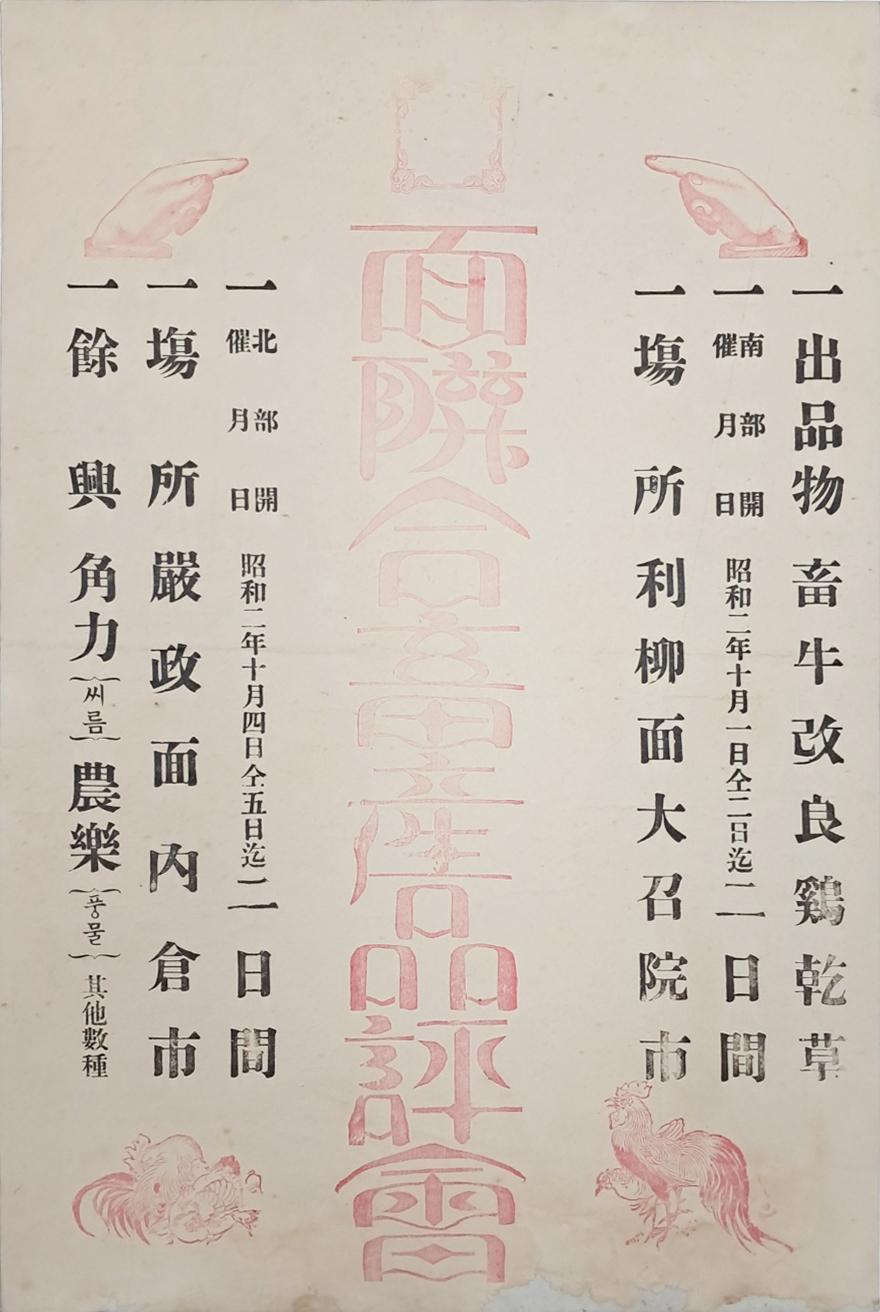 一出品物 畜牛改良鷄乾草
一南部開催月日 昭和二年十月一日仝二日迄二日間
一場所 利柳面大召院市
面聯合畜産品評會
一北部開催月日 昭和二年十月四日仝五日迄二日間
一場所 嚴政面內倉市
一餘興 角力(씨름)農樂(풍물)其他數種